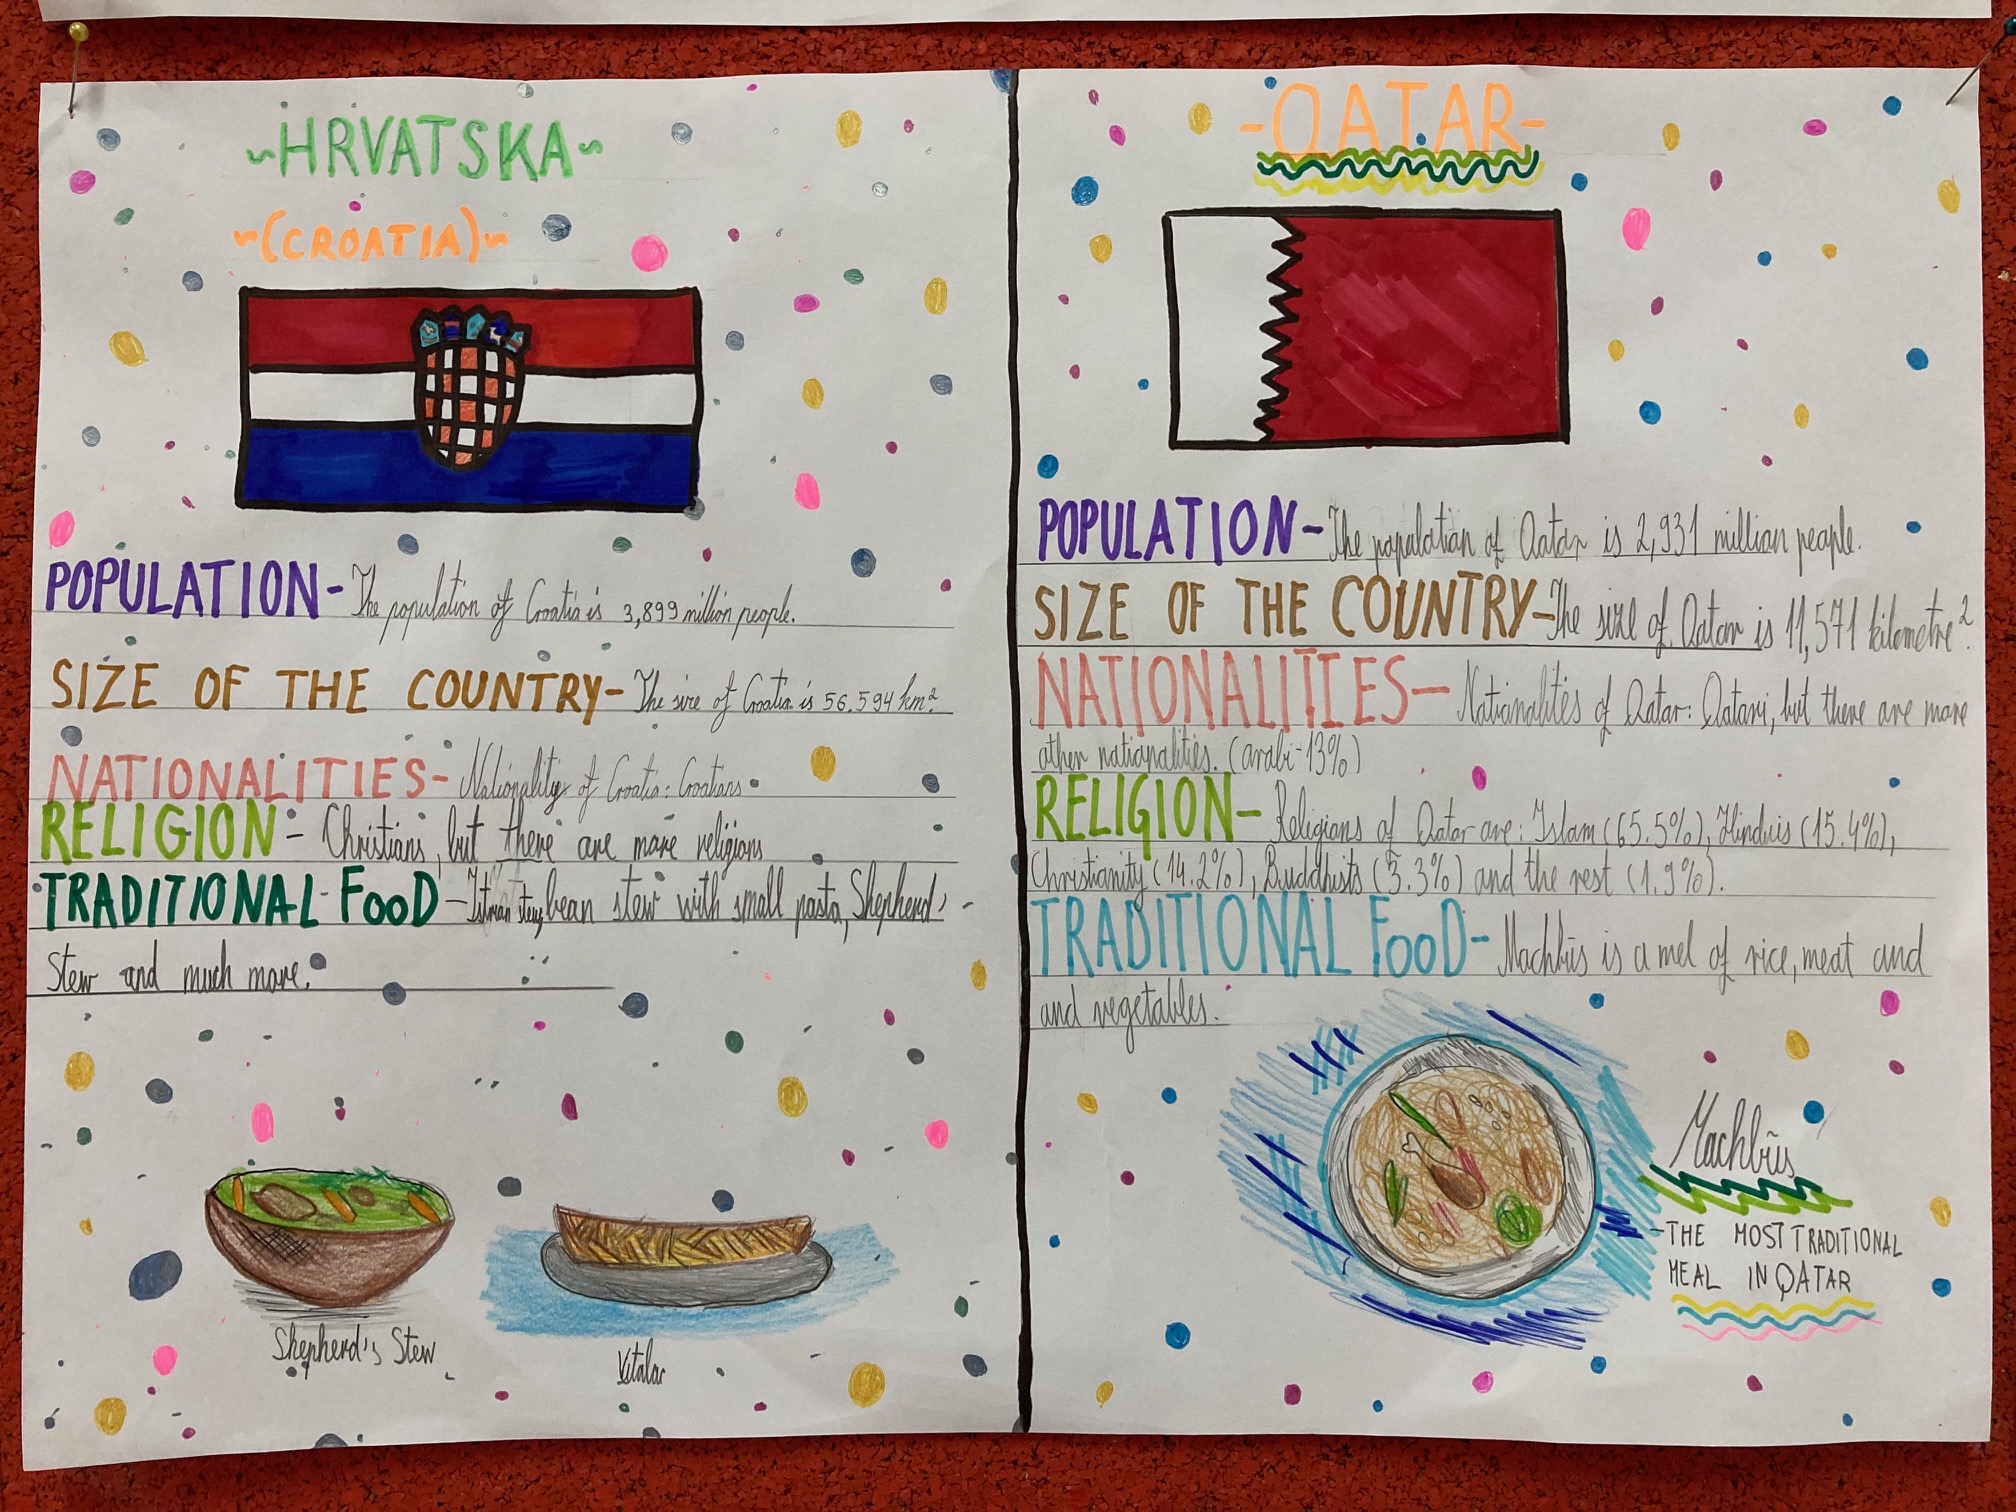 ~HRVATSKA~
~(CROATIA)~
POPULATION- The population of Croatia is 3,899 million people.
SIZE OF THE COUNTRY- The size of Croatia is 56.594 km²
NATIONALITIES- Nationality of Croatia: Croatians
RELIGION- Christians, but there are more religions
TRADITIONAL FOOD- Istrian stew, bean stew with small pasta, Shepherd's
Stew and much more.
Shepherd's Stew
Vitalac
-QATAR-
POPULATION- The population of Qatar is 2,931 million people.
SIZE OF THE COUNTRY- The size of Qatar is 11,571 kilometre².
NATIONALITIES- Nationalités of Qatar: Qatari, but there are more
other nationalities. (arabi-13%)
RELIGION- Religions of Qatar are: Islam (65.5%), Hinduis (15.4%),
Christianity (14.2%), Buddhists (3.3%) and the rest (1.9%).
TRADITIONAL FOOD- Machbūs is a mel of rice, meat and
and vegetables.
Machbūs
-THE MOST TRADITIONAL
MEAL IN QATAR